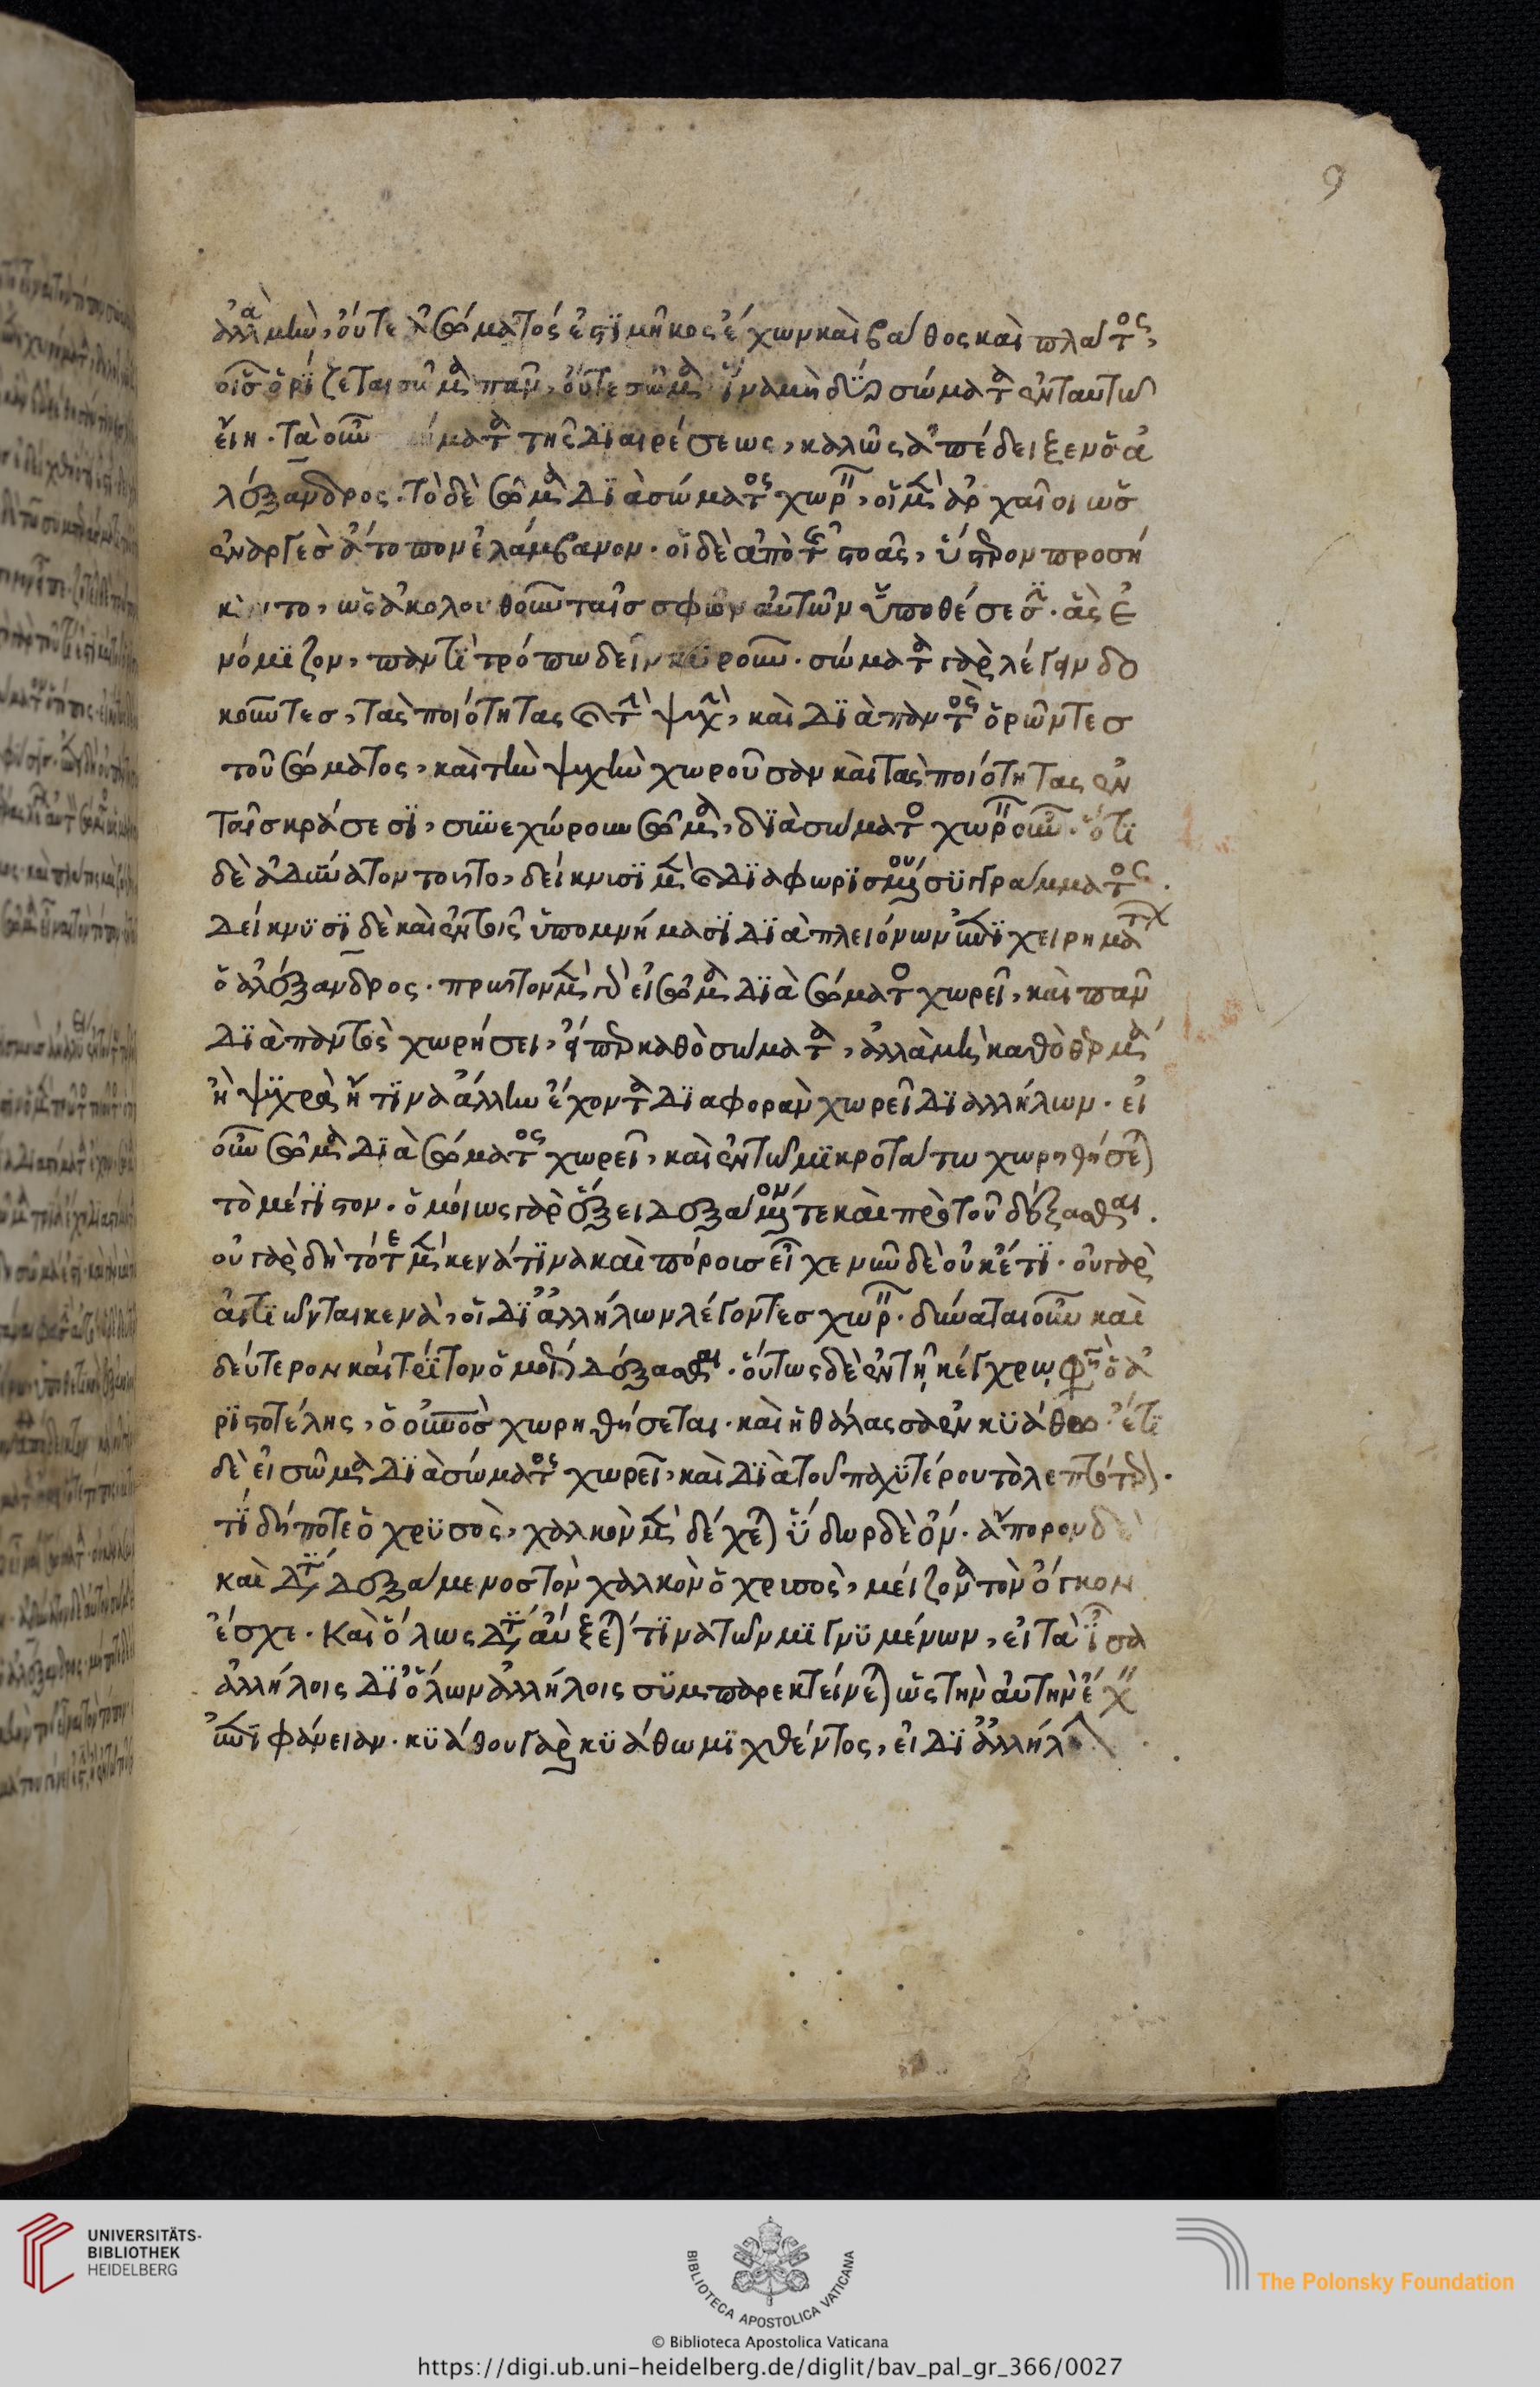 9
ἀλλὰ μὴν, οὔτε ἀσώματός ἐστϊ μῆκος ἔχων καὶ βάθος καὶ πλάτος,
οἷς ὁρίζεται σῶμα πᾶν, οὔτε σῶμα ἵνα μὴ δύο σώματα ἐν ταυτῶ
εἴη. τὰ οὖν τμήματα τῆς Διαιρέσεως, καλῶς ἀπέδειξεν ὁ ἀ
λέξανδρος. τὸ δὲ σῶμα Δϊὰ σώματος χωρεῖν, οἱ μὲν ἀρχαῖοι ὡς
ἐναργὲς ἄτοπον ἐλάμβανον. οἱ δὲ ἀπὸ τῆς στοᾶς, ὕστερον προσή
καντο, ὡς ἀκολουθοῦν ταῖς σφῶν αὐτῶν ὑποθέσεσιν. ἃς ἐ
νόμϊζον, παντὶ τρόπω δεῖν κυροῦν. σώματα γὰρ λέγειν δο
κοῦντες, τὰς ποιότητας καὶ τὴν ψυχὴν, καὶ Δϊὰ παντὸς ὁρῶντες
τοῦ σώματος, καὶ τὴν ψυχὴν χωροῦσαν καὶ τὰς ποιότητας ἐν
ταῖς κράσεσϊ, συνεχώρουν σῶμα, δϊὰ σώματος χωρεῖν. ὅτι
δὲ ἀδύνατον τοῦτο, δείκνυσϊ μὲν καὶ Δϊ ἀφωρϊσμένου συγγράμματος.
Δείκνϋσϊ δὲ καὶ ἐν τοῖς ὑπομνήμασϊ Δϊὰ πλειόνων ἐπιχειρημάτων
ὁ ἀλέξανδρος. πρῶτον μὲν γὰρ εἰ σῶμα Δϊὰ σώματος χωρεῖ, καὶ πᾶν
Δϊὰ παντὸς χωρήσει, εἴπερ καθὸ σώματα, ἀλλὰ μὴ καθὸ θερμὰ
ἢ ψϋχρὰ ἤ τϊνα ἄλλην ἔχοντα Δϊαφορὰν χωρεῖ Δϊ ἀλλήλων. εἰ
οὖν σῶμα Δϊὰ σώματος χωρεῖ, καὶ ἐν τῶ μϊκροτάτω χωρηθήσεται
τὸ μέγϊστον. ὁμοίως γὰρ ἕξει Δεξάμενόν τε καὶ πρὸ τοῦ δέξασθαι.
οὐ γὰρ δὴ τότε μὲν κενά τϊνα καὶ πόρους εἶχε νῦν δὲ οὐκέτϊ. οὐ γὰρ
αἰτϊῶνται κενὰ, οἱ Δϊ ἀλλήλων λέγοντες χωρεῖν. δύναται οὖν καὶ
δεύτερον καὶ τρίτον ὁμοίως Δέξασθαι. οὕτως δὲ ἐν τῆ κέγχρω, φησὶν ὁ ἀ
ρϊστοτέλης, ὁ οὐρανὸς χωρηθήσεται. καὶ ἡ θάλασσα ἐν κϋάθω. ἔτϊ
δὲ εἰ σῶμα Δϊὰ σώματος χωρεῖ, καὶ Δϊὰ τοῦ παχϋτέρου τὸ λεπτότερον.
τί δήποτε ὁ χρϋσὸς, χαλκὸν μὲν δέχεται ὕδωρ δὲ οὔ. ἄπορον δὲ
καὶ Διατί Δεξάμενος τὸν χαλκὸν ὁ χρυσὸς, μείζονα τὸν ὄγκον
ἔσχε. καὶ ὅλως Διατί αὔξεταί τϊνα τῶν μϊγνϋμένων, εἰ τὰ ἴσα
ἀλλήλοις Δϊ ὅλων ἀλλήλοις συμπαρεκτείνεται ὡς τὴν αὐτὴν ἔχειν
ἐπϊφάνειαν. κϋάθου γὰρ κϋάθω μϊχθέντος, εἰ Δϊ ἀλλήλων
UNIVERSITÄTS-
BIBLIOTHEK
HEIDELBERG
BIBLIOTECA APOSTOLICA VATICANA
The Polonsky Foundation
© Biblioteca Apostolica Vaticana
https://digi.ub.uni-heidelberg.de/diglit/bav_pal_gr_366/0027